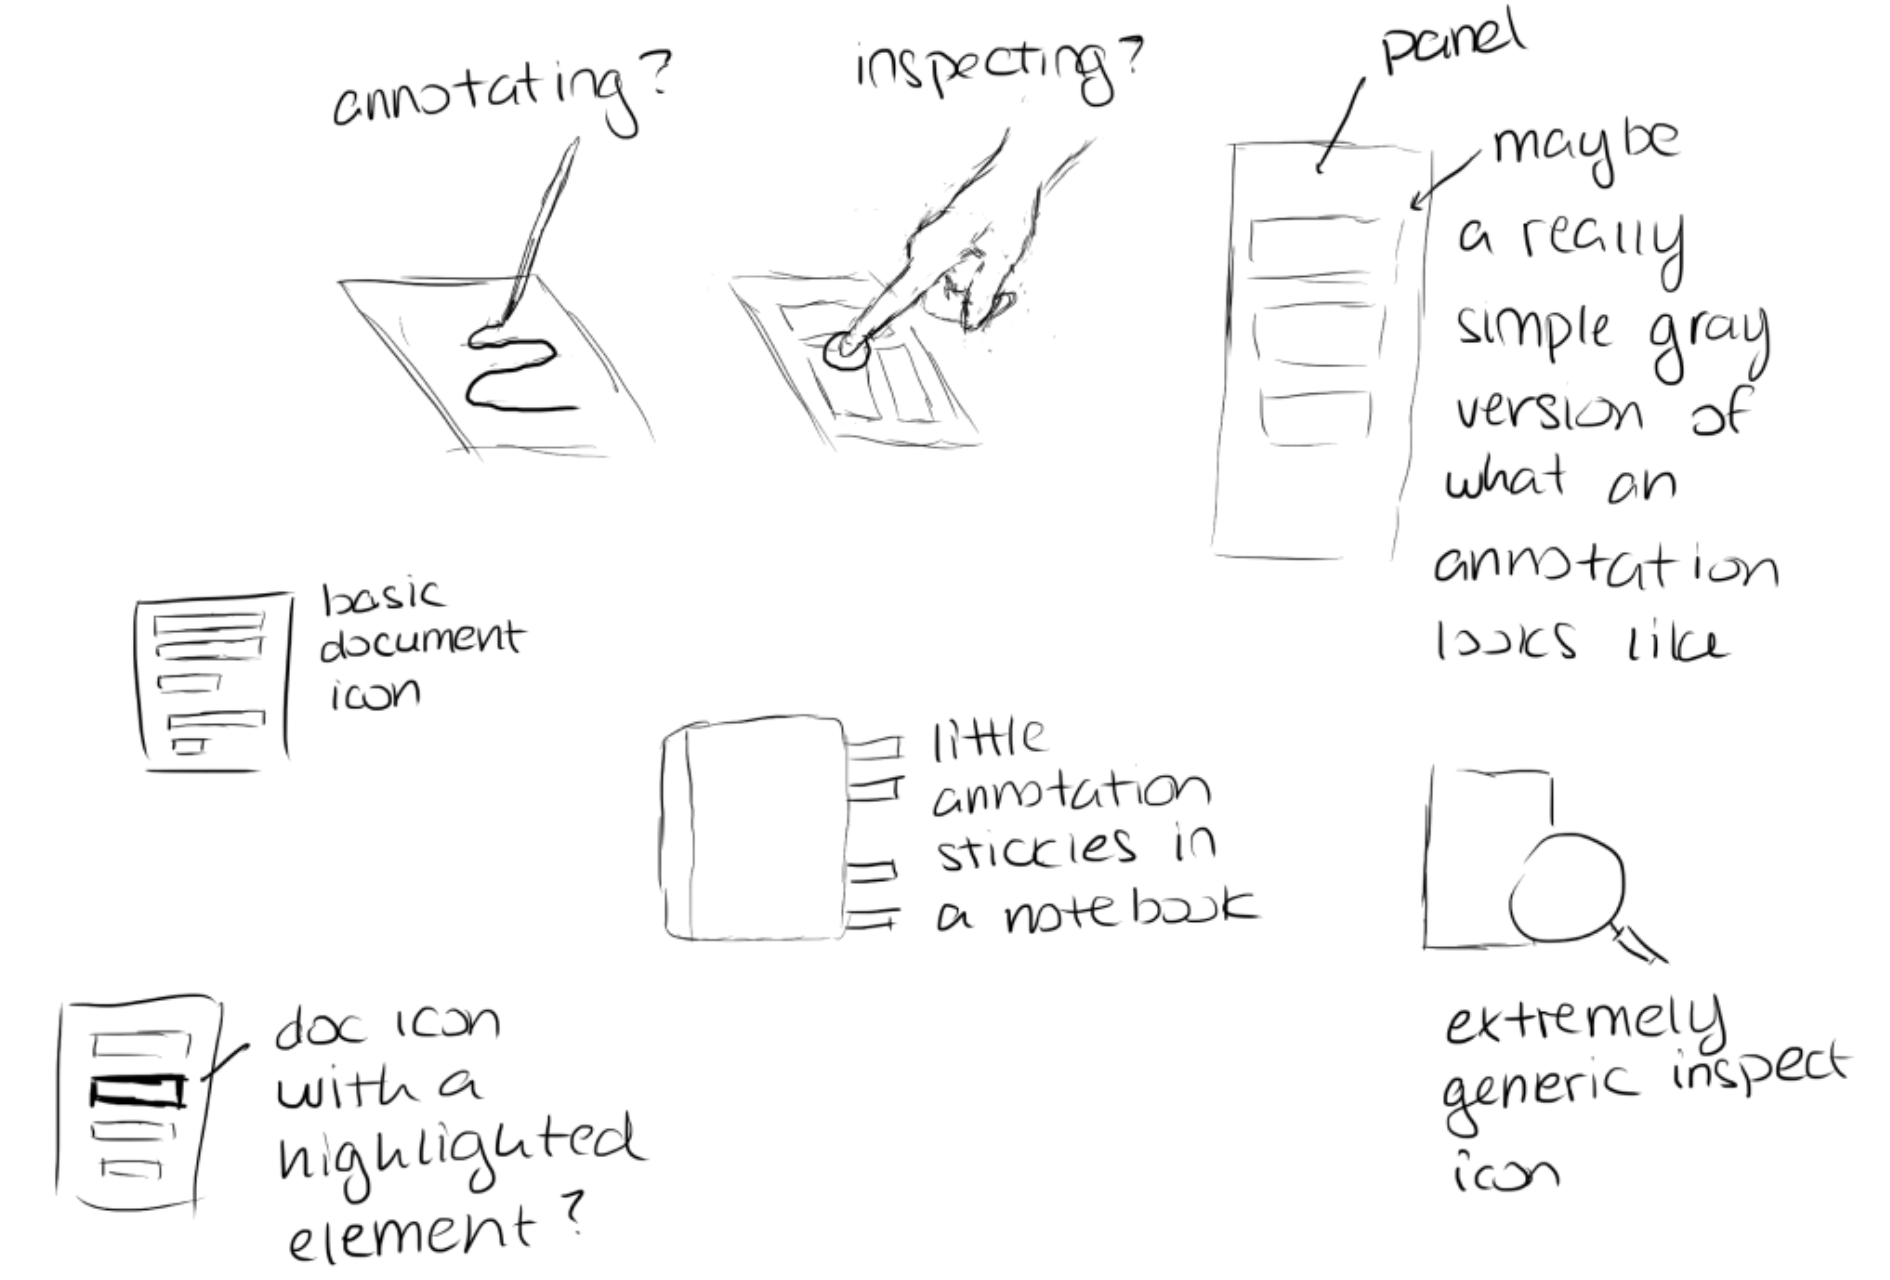 annotating?
inspecting?
panel
maybe
a really
simple gray
version of
what an
annotation
looks like
basic
document
icon
little
annotation
stickies in
a notebook
doc icon
with a
highlighted
element?
extremely
generic inspect
icon